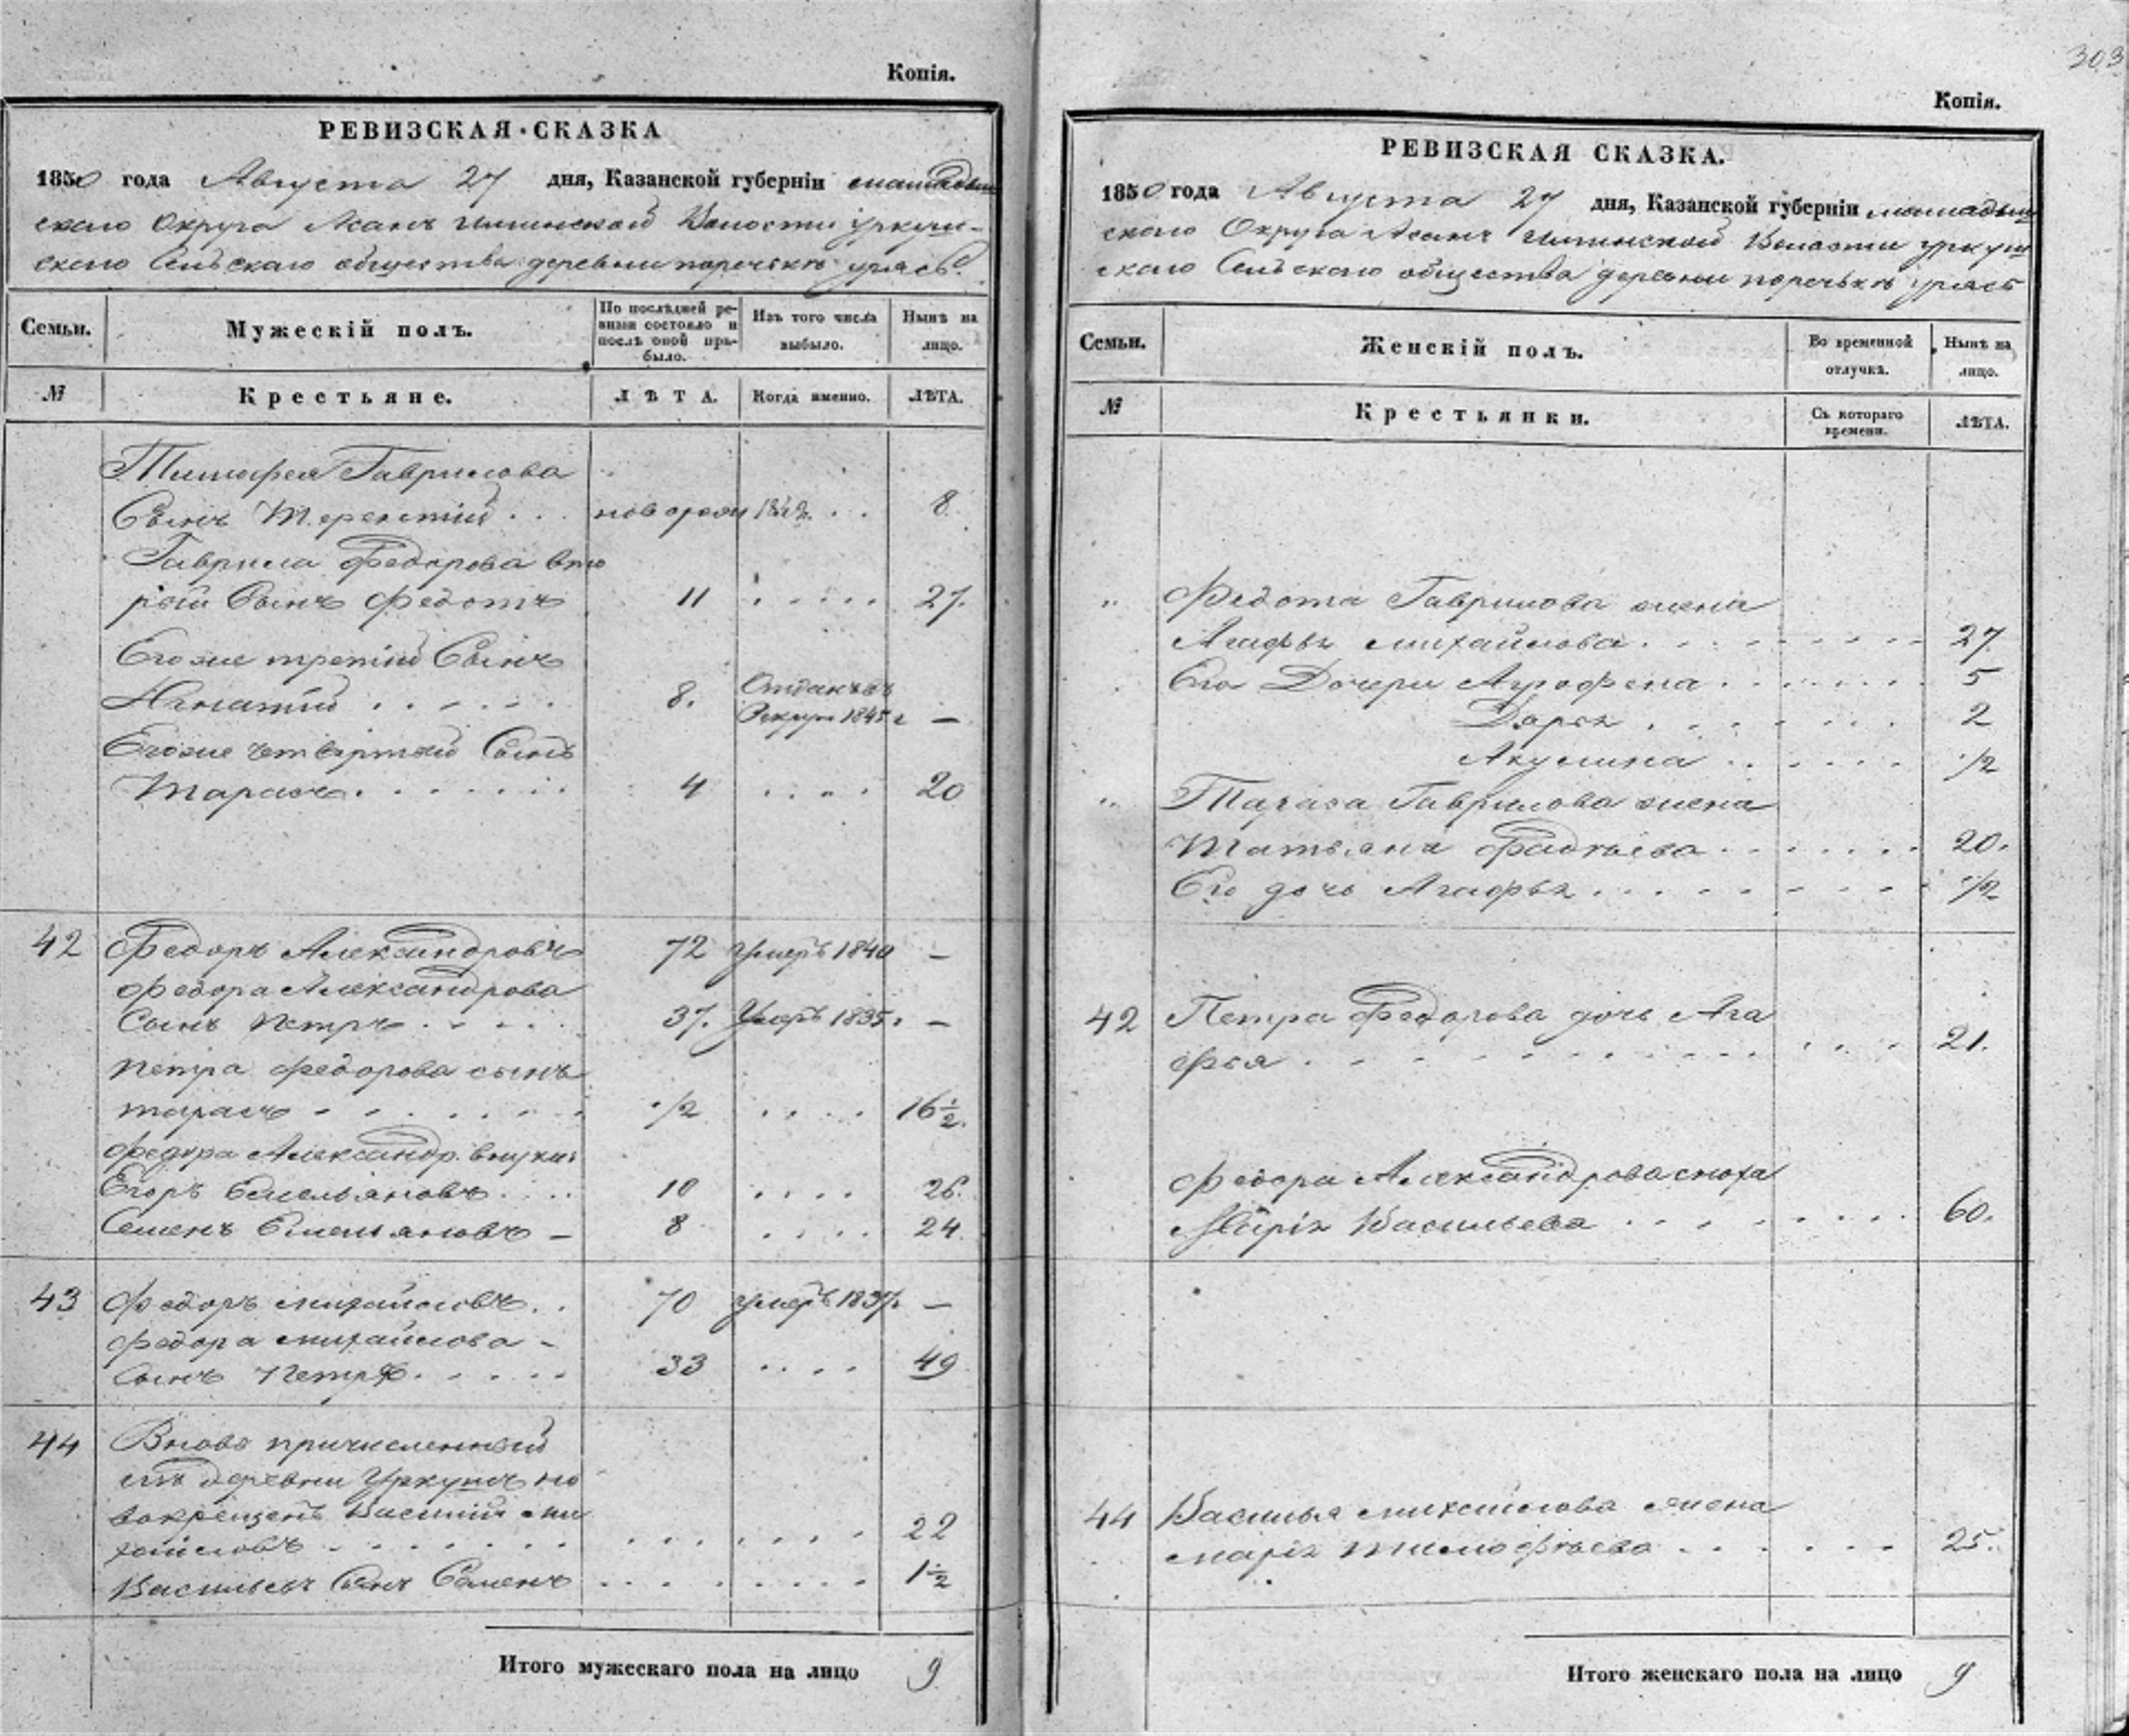 Копія.
РЕВИЗСКАЯ·СКАЗКА
1850 года Августа 27 дня, Казанской губерніи мамадыш
скаго Округа Асанъ Илгинской Волости Уркуш-
скаго Сельскаго общества деревни поречьки
Семьи.
Мужескій полъ.
По послѣдней ре-
визіи состояло и
послѣ оной при-
было.
Изъ того числа
выбыло.
Нынѣ на
лицо.
№
Крестьяне.
ЛѢТА.
Когда именно.
ЛѢТА.
Тимофея Гаврилова
Сынъ Терентий . . . новорож 1842. . . 8
Гаврила Федорова вто
рой Сынъ Федотъ 11 . . . . . 27.
Егоже третій Сынъ
Игнатий . . . . . . 8. Отданъ въ
Рекрут 1845 г —
Егоже четвертый Сынъ
Тарасъ . . . . . . 4 . . . . 20
42 Федоръ Александровъ 72 Умеръ 1840 —
Федора Александрова
Сынъ Петръ . . . . 37. Умеръ 1835. —
Петра Федорова сынъ
тарасъ - - . . . . . 1/2 . . . . 16 1/2.
Федора Александр. внуки:
Егоръ Емельяновъ . . . . 10 . . . . 26.
Семенъ Емельяновъ — 8 . . . . 24.
43 Федоръ михайловъ . . 70 умеръ 1837. —
Федора михайлова -
Сынъ Петръ . . . . . 33 . . . . 49
44 Вновь причисленный
изъ деревни Уркушъ но
вокрещенъ Василий ми
хайловъ - . . . . . . . . . . . . 22
Васильевъ Сынъ Семенъ . . . . . . . . 1 1/2
Итого мужескаго пола на лицо 9
303
Копія.
РЕВИЗСКАЯ СКАЗКА.
1850 года Августа 27 дня, Казанской губерніи мамадыш
скаго Округа Асанъ Илгинской Волости Уркуш
скаго Сельскаго общества деревни поречькъ
Семьи.
Женскій полъ.
Во временной
отлучкѣ.
Нынѣ на
лицо.
№
Крестьянки.
Съ котораго
времени.
ЛѢТА.
" Федота Гаврилова жена
Агафья михайлова . . . . . . . . 27
Его Дочери Аграфена . . . . . . . 5
Дарья . . . . . . . 2
Акулина . . . . . . 1/2
" Тараса Гаврилова жена
Татьяна Фадеева . . . . . . 20.
Его дочь Агафья . . . . . . . . 1/2
42 Петра Федорова дочь Ага
фья . . . . . . . . . . . . . 21.
Федора Александрова сноха
Марія Васильева . . . . . . . . 60.
44 Василья михайлова жена
марія тимофѣева . . . . . . 25.
Итого женскаго пола на лицо 9